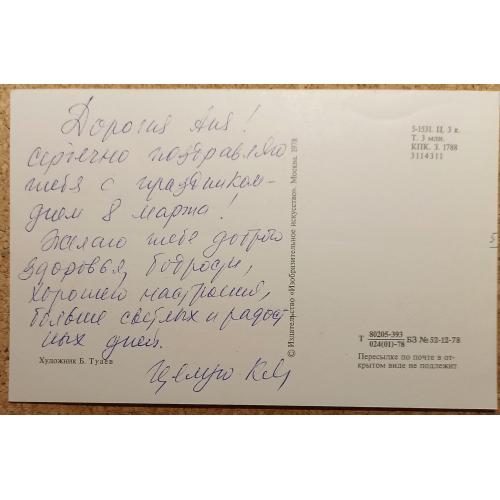 Дорогая Аня!
сердечно поздравляю
тебя с праздником-
днем 8 марта!
Желаю тебе доброго
здоровья, бодрости,
хорошего настроения,
больше светлых и радост
ных дней.
Целую
Художник Б. Туаев
© Издательство «Изобразительное искусство». Москва. 1978
5-1531. Ц. 3 к.
Т. 3 млн.
КПК. З. 1788
3114311
Т 80205-393 БЗ № 52-12-78
024(01)-78
Пересылке по почте в от-
крытом виде не подлежит